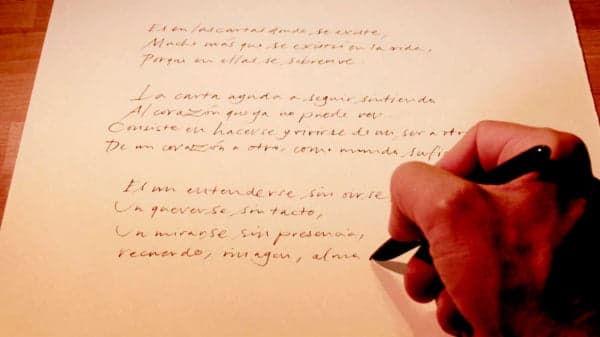 Es en las cartas donde se existe,
Mucho más que se existió en la vida,
Porque en ellas se sobrevive
La carta ayuda a seguir sintiendo
Al corazón que ya no puede ver
Consiste en hacerse y vivirse de un ser a otro
De un corazón a otro, como mundo sufi
Es un entenderse sin oirse
Un quererse sin tacto,
Un mirarse sin presencia,
recuerdo, imagen, alma